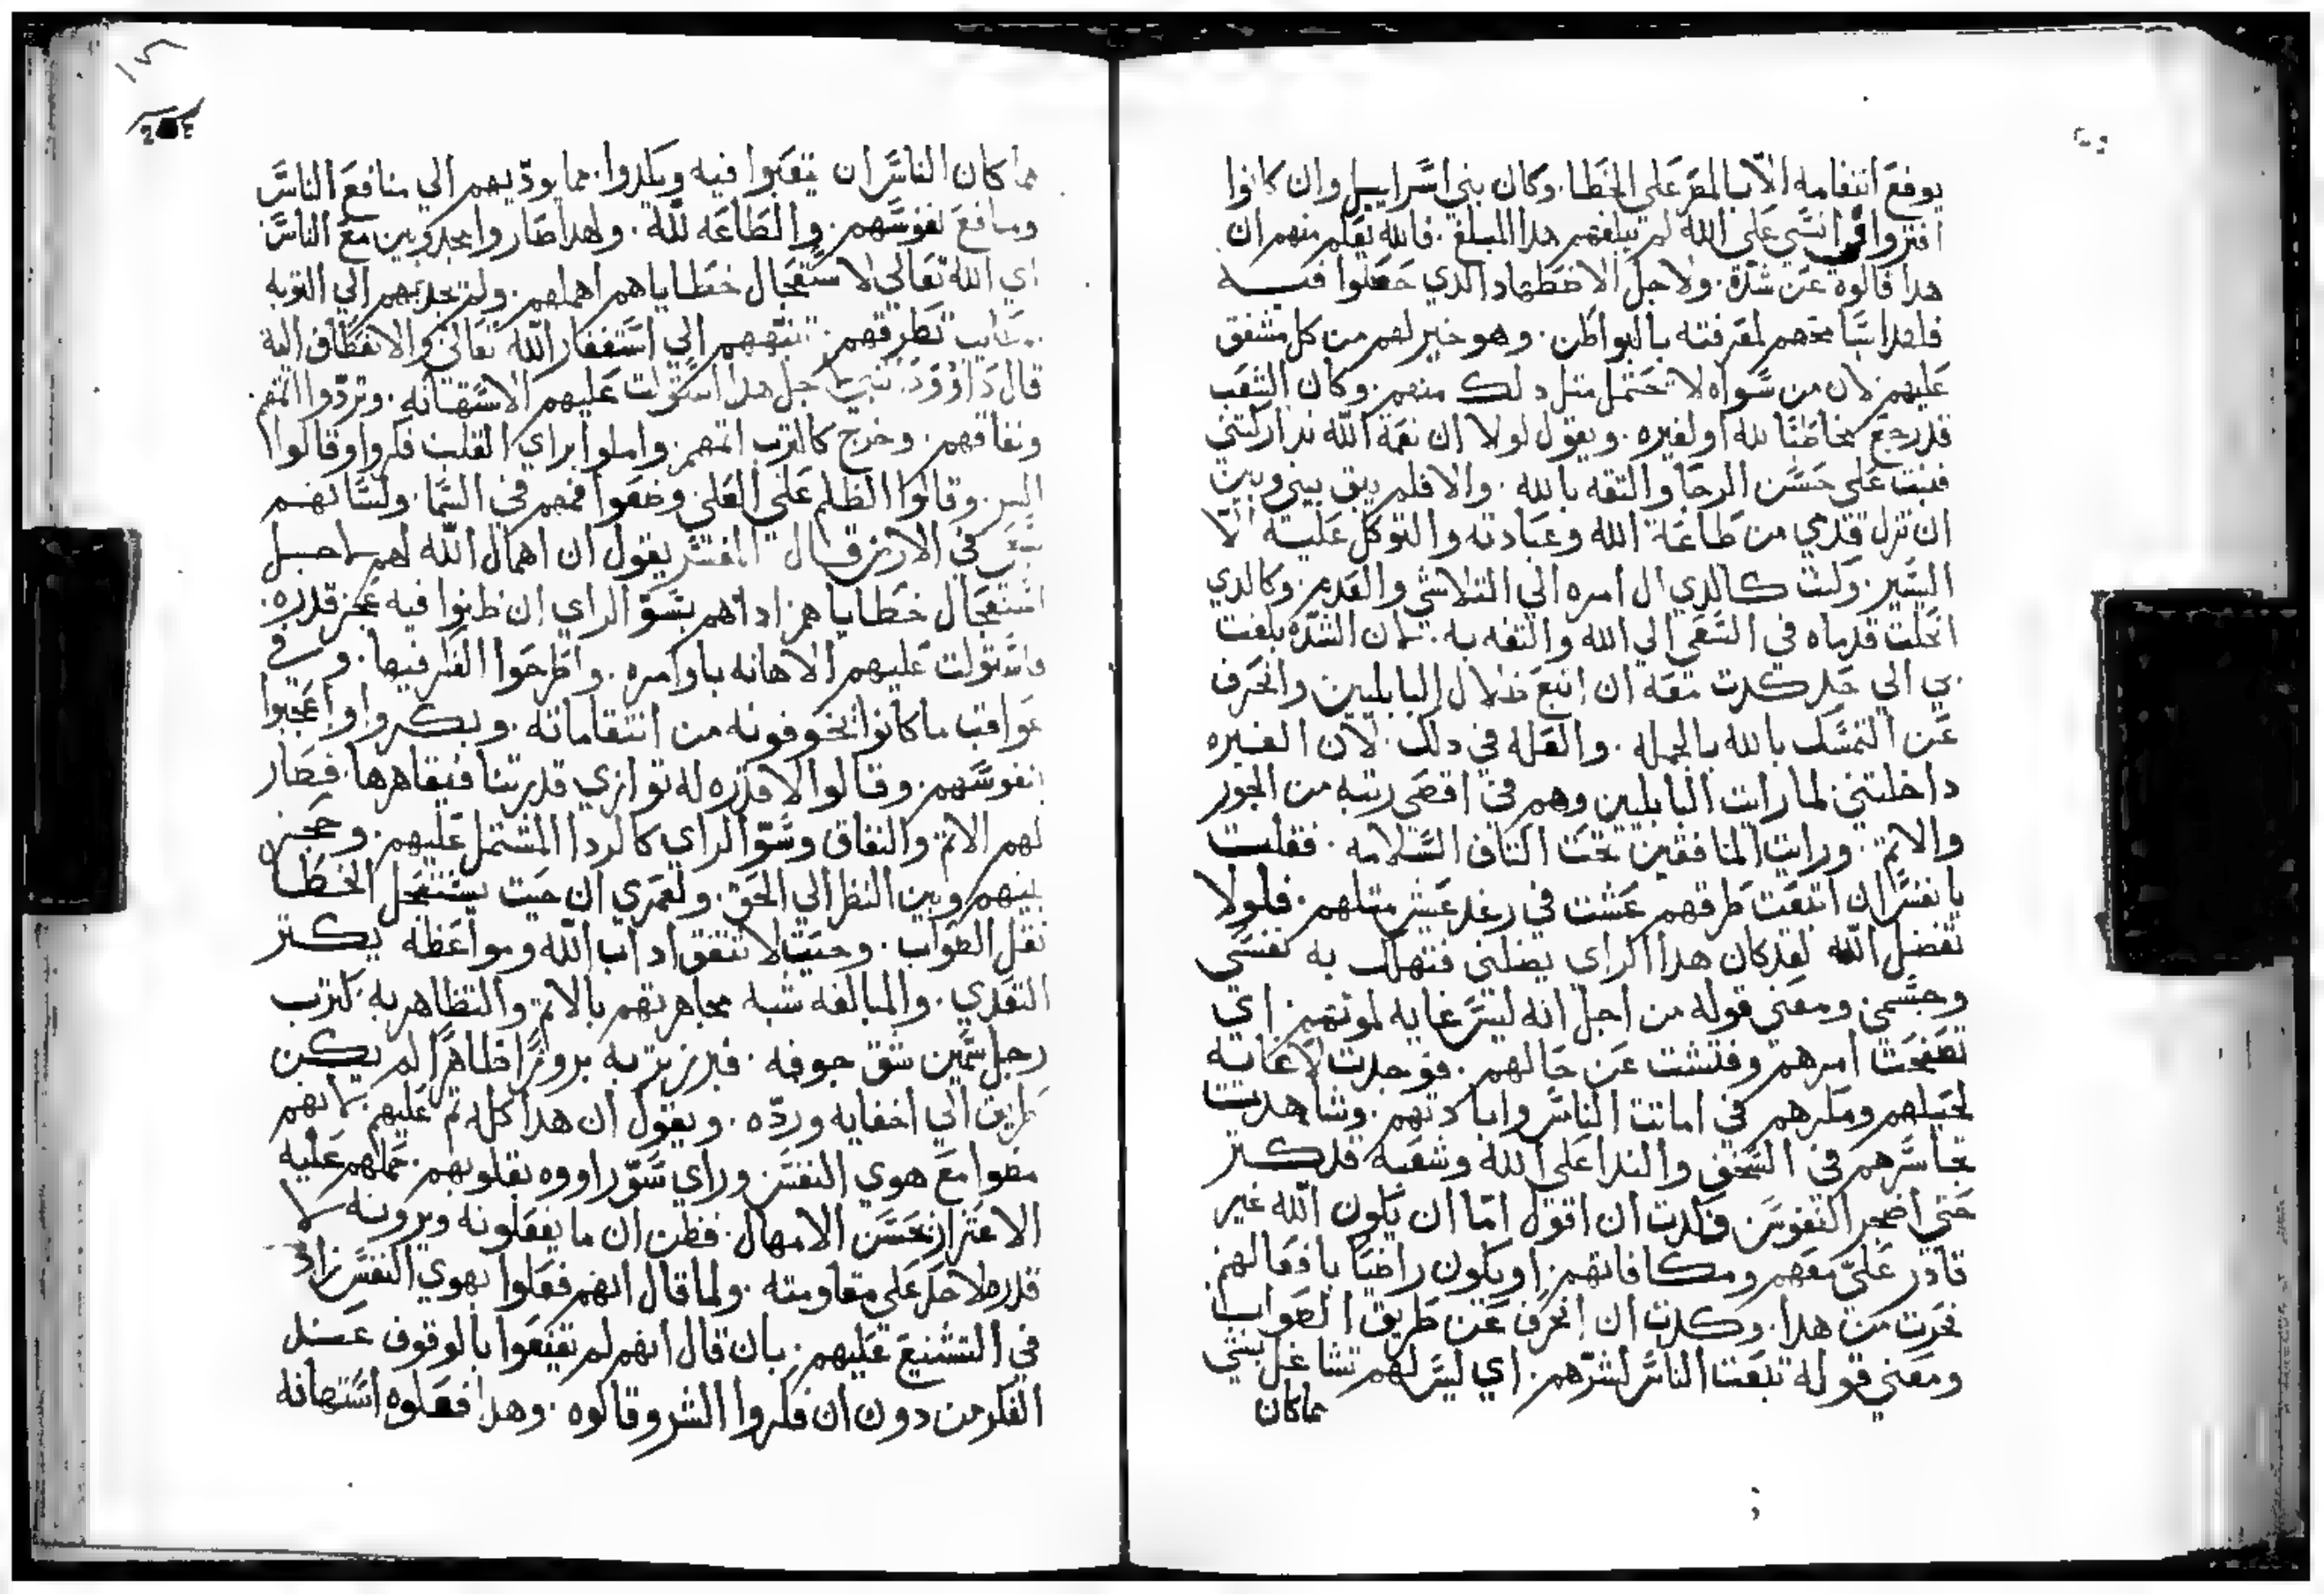 يوقع انتقامه الا بالمقر على الخطا. وكان بني اسراييل وان كانوا
افتروا على الله لم يبلغهم هدا المبلغ. فالله يعلم منهم ان
هدا قالوه عن شدة. ولاجل الاضطهاد الدي حصلوا فيه
فلهدا سامحهم لمعرفته بالبواطن. وهو خير لهم من كل مشفق
عليهم. لان من سواه لا تحتمل متل دلك منهم. وكان الشعب
قد رجع مخاطبا لله او لغيره. ويقول لولا ان نعمة الله تداركتني
فتبت على حسن الرجا والتقه بالله. والا فلم يبق بيني وبين
ان تزل قدمي من طاعة الله وعبادته والتوكل عليه الا
اليسير. وكنت كالدي ال امره الي التلاشي والعدم. وكالدي
انحلت قدماه في السعي الي الله والتقه به. لان الشده بلغت
بي الي حد كدت معه ان اتبع ضلال البابليين وانحرف
عن التمسك بالله بالجمله. والعله في دلك. لان الغيره
داخلتني لما رايت البابليين وهم في اقصي رتبه من الجور
والاتم. ورايت المنافقين تحت اكناف السلامه. فقلت
يا نفس ان اتبعت طرقهم عشت في رغد عيش متلهم. فلولا
تفضل الله لقد كان هدا الراي يضلني فتهلك به نفسي
وجسمي ومعني قوله من اجل انه ليس غايه لموتهم. اي
تصفحت امرهم وفتشت عن حالهم. فوجدت لا غاية
لحيلهم ومكرهم في اماتت الناس وابادتهم. وشاهدت
تجاسرهم في السخق والندا على الله وشعبه قد كتر
حتي اضجر النفوس وكدت ان اقول اما ان يكون الله غير
قادر على معهم ومكافاتهم. او يكون راضيا بافعالهم
نحرت من هدا. وكدت ان انحرف عن طريق الصواب
ومعني قوله تبعت الناس لشرهم. اي ليس لهم تشاغل بشي
مما كان
مما كان الناس ان يتعبوا فيه ويكدوا. مما يوديهم الي منافع الناس
ومنافع نفوسهم. والطاعه لله. ولهدا صاروا مع الناس
اي الله تعالي لاستفحال خطاياهم اهملهم. ولم يجدبهم الي التوبه
تطرقهم. تنبههم الي استغفار الله تعالي والانعطاف اليه
قال داوود اجل هدا استولت عليهم الاستهانه. وتردوا اتمهم
ونفاقهم. وخرج كالترب اتمهم. واملوا براي القلب فكروا وقالوا
الشر. وقالوا الظلم على العلي وضعوا فمهم في السما. ولسانهم
في الارض قال المفسر يقول ان اهمال الله لهم لاجل
استفحال خطاياهم اداهم بسو الراي ان ظنوا فيه عجز قدره.
فاستولت عليهم الاهانه باوامره. واطرحوا الفكر فيها. وفي
عواقب ما كانوا يخوفونه من انتقاماته. وبكروا واعجبوا
نفوسهم. وقالوا لا قدره له توازي قدرتنا فيقاهرها. فصار
لهم الاتم والنفاق وسو الراي كالردا المشتمل عليهم. وحجز
بينهم وبين النظر الي الحق. ولعمري ان حيت يستفحل الخطا
نقل الصواب. وحيت لا تتفق اداب الله ومواعظه يكتر
التعدي. والمبالغه شبه مجاهرتهم بالاتم والتظاهر به كترب
رجل سمين شق جوفه. فبرز تربه بروزا ظاهرا لم يكن
طريق الي اخفايه ورده. ويقول ان هدا كله تم عليهم لانهم
مضوا مع هوي النفس وراي سو راووه بقلوبهم. حملهم عليه
الاغترار بحسن الامهال. فظن ان ما يفعلونه ويرونه لا
قدره لاحد على مقاومته. ولما قال انهم فعلوا بهوي النفس زاد
في التشنيع عليهم. بان قال انهم لم يقنعوا بالوقوف عند
الفكر من دون ان فكروا الشر وقالوه. وهدا فعلوه استهانه